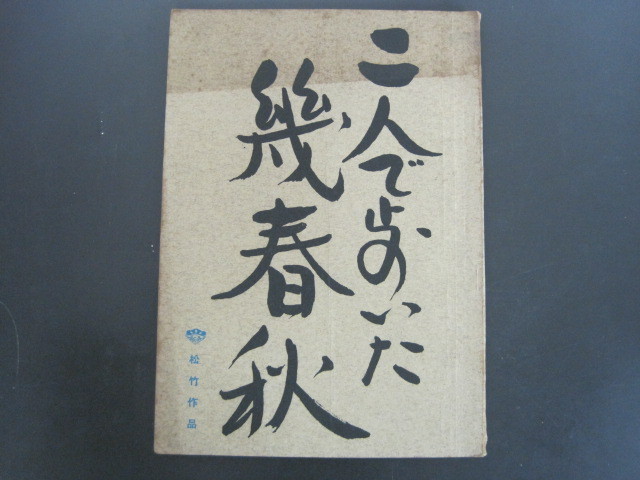 二人で歩いた
幾春秋
松竹作品